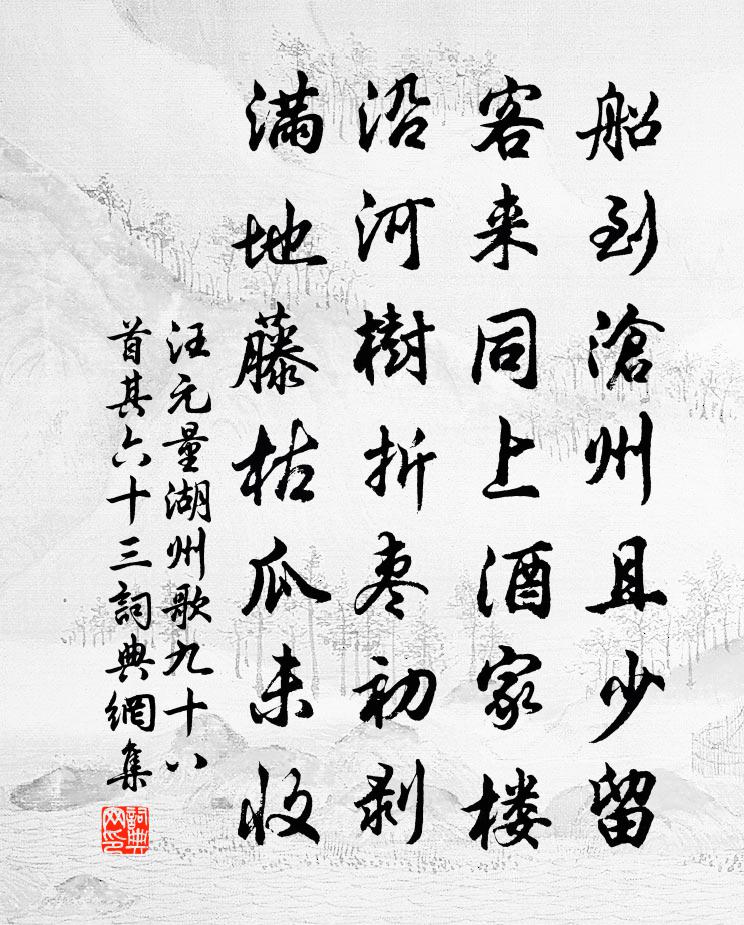 船到滄州且少留
客来同上酒家楼
沿河樹折枣初剥
满地藤枯瓜未收
汪元量湖州歌九十八
首其六十三詞典網集
詞典網印